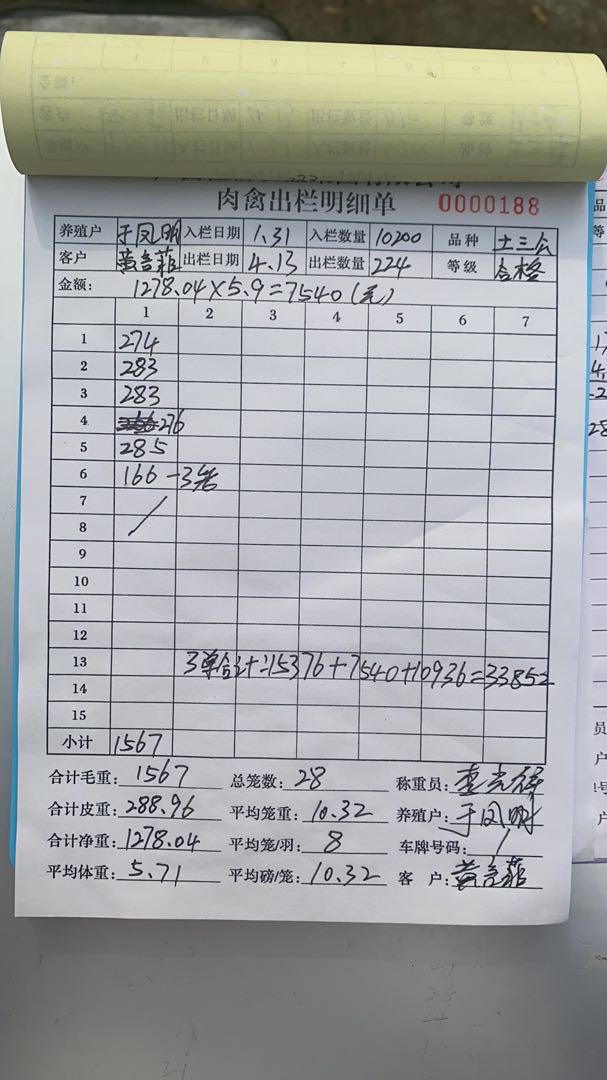 肉禽出栏明细单 0000188
养殖户 于凤明 入栏日期 1.31 入栏数量 10200 品种 土三公
客户 出栏日期 4.13 出栏数量 224 等级 合格
金额： 1278.04×5.9=7540(元)
1 2 3 4 5 6 7
1 274
2 283
3 283
4 276
5 285
6 166-3笼
7
8
9
10
11
12
13 3单合计:15376+7540+10936=33852
14
15
小计 1567
合计毛重: 1567 总笼数: 28 称重员:
合计皮重: 288.96 平均笼重: 10.32 养殖户: 于凤明
合计净重: 1278.04 平均笼/羽: 8 车牌号码: /
平均体重: 5.71 平均磅/笼: 10.32 客 户: